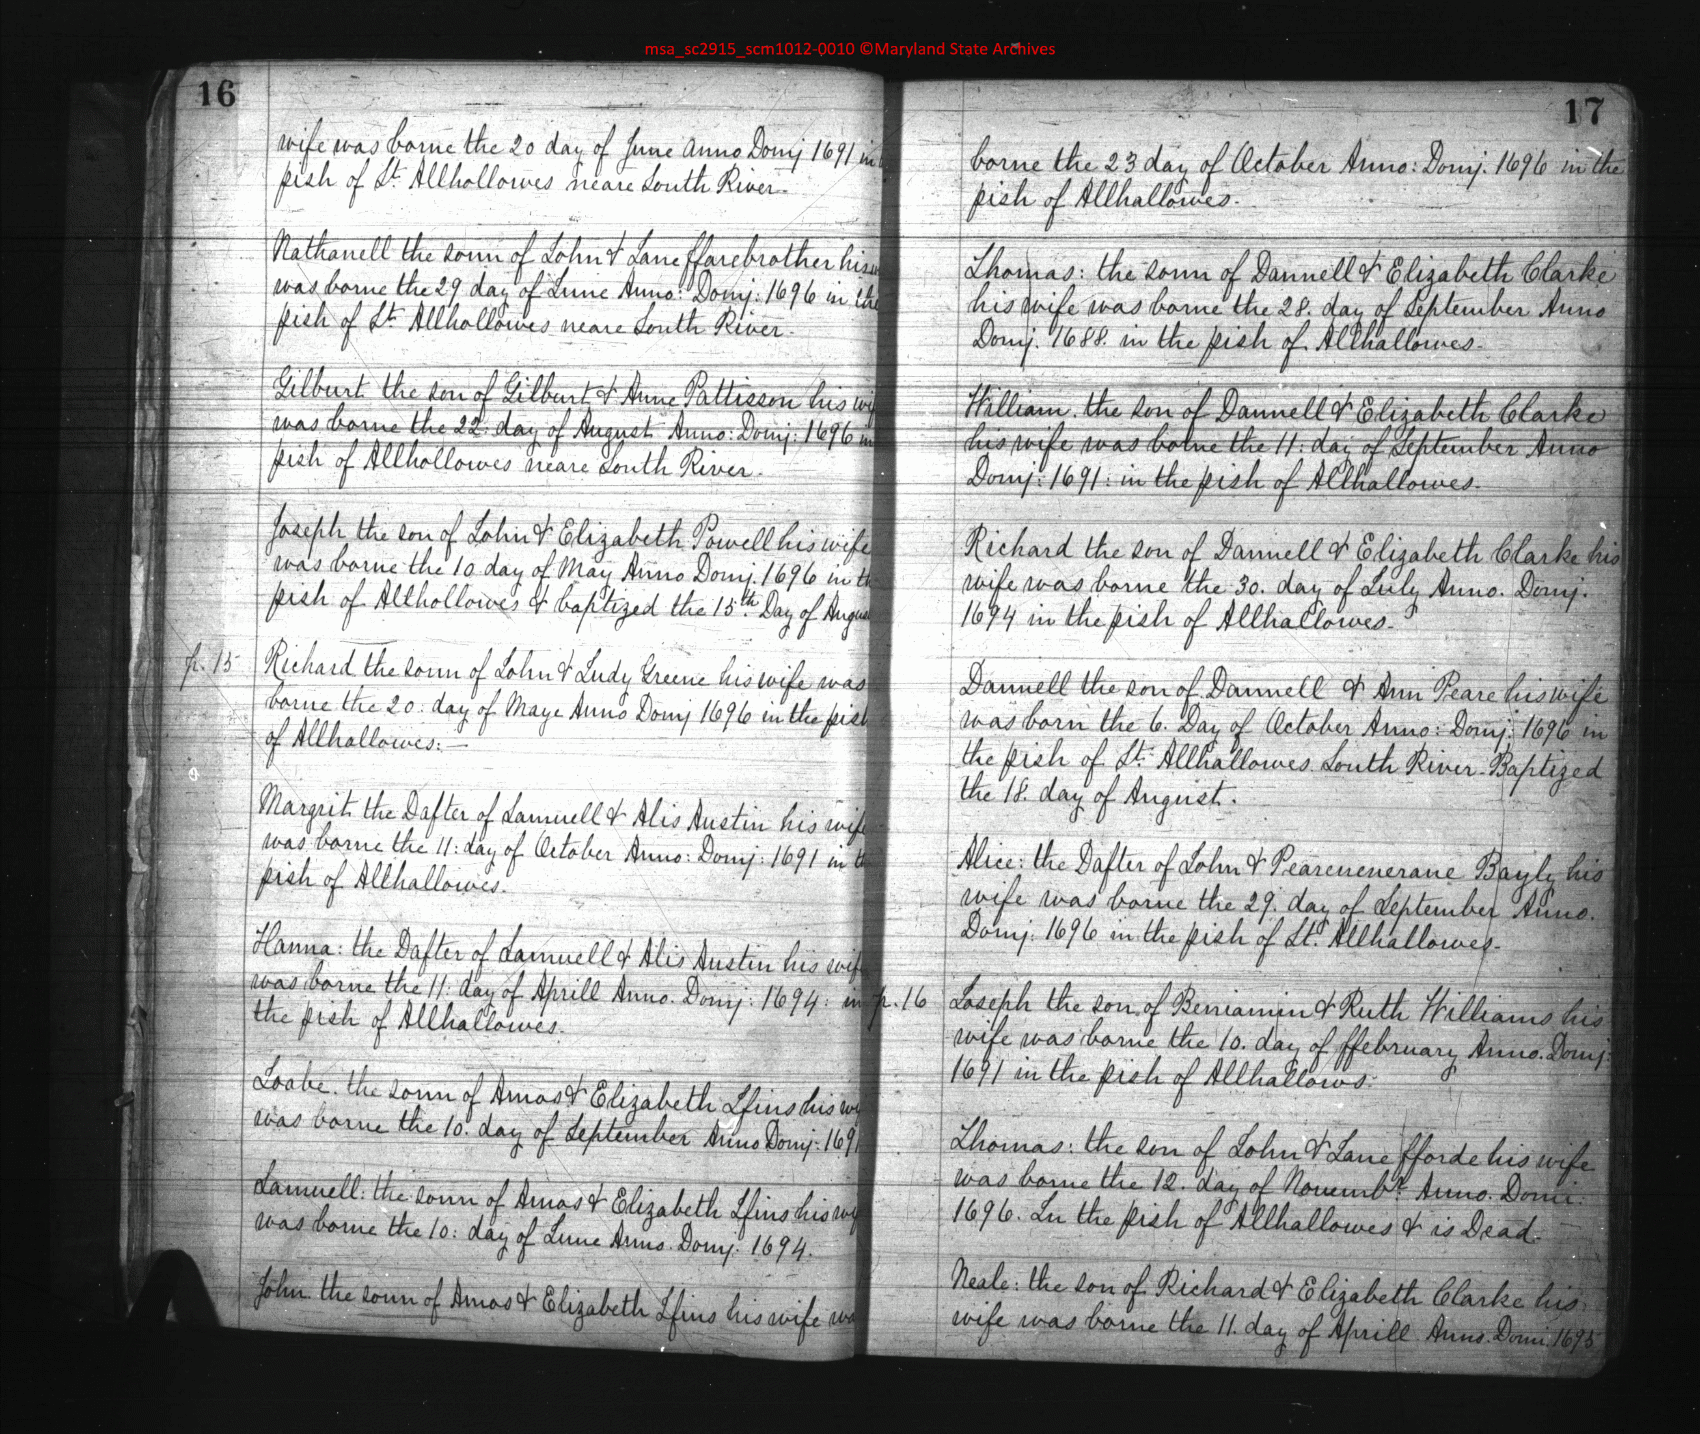 msa_sc2915_scm1012-0010 ©Maryland State Archives
16
wife was borne the 20 day of June anno Domj 1691 in
pish of St. Allhollowes neare South River.
Nathanell the sonn of John & Jane ffarebrother his
was borne the 29 day of June Anno: Domj: 1696 in the
pish of St. Allhollowes neare South River.
Gilburt the son of Gilburt & Anne Pattisson his wif
was borne the 22: day of August Anno: Domj: 1696 in
pish of Allhollowes neare South River.
Joseph the son of John & Elizabeth Powell his wife
was borne the 10 day of May Anno Domj. 1696 in th
pish of Allhollowes & baptized the 15th Day of Augus
p. 15
Richard the sonn of John & Judy Greene his wife was
borne the 20: day of Maye Anno Domj 1696 in the pish
of Allhallowes:—
Margrit the Dafter of Samuell & Alis Austin his wife
was borne the 11: day of October Anno: Domj: 1691 in th
pish of Allhallowes.
Hanna: the Dafter of Samuell & Alis Austin his wife
was borne the 11: day of Aprill Anno. Domj: 1694: in
the pish of Allhallowes.
the sonn of Amos & Elizabeth his wi
was borne the 10. day of September Anno Domj: 169
Samuell: the sonn of Amos & Elizabeth his wif
was borne the 10: day of June Anno. Domj. 1694.
John the sonn of Amos & Elizabeth his wife wa
17
borne the 23 day of October Anno: Domj. 1696 in the
pish of Allhallowes.
Thomas: the sonn of Dannell & Elizabeth Clarke
his wife was borne the 28. day of September Anno
Domj. 1688. in the pish of Allhallowes.
William. the son of Dannell & Elizabeth Clarke
his wife was borne the 11: day of September Anno
Domj: 1691: in the pish of Allhallowes.
Richard the son of Dannell & Elizabeth Clarke his
wife was borne the 30. day of July Anno. Domj.
1694 in the pish of Allhallowes.
Dannell the son of Dannell & Ann Peare his wife
was born the 6. Day of October Anno: Domj: 1696 in
the pish of St. Allhallowes South River. Baptized
the 18. day of August.
Alice: the Dafter of John & Pearcenerane Bayly his
wife was borne the 29. day of September Anno.
Domj: 1696 in the pish of St. Allhallowes.
p. 16
Joseph the son of Beniamin & Ruth Williams his
wife was borne the 10. day of ffebruary Anno. Domj:
1691 in the pish of Allhallows.
Thomas: the son of John & Jane fforde his wife
was borne the 12. day of Novembr. Anno. Domi:
1696. In the pish of Allhallowes & is Dead.
Neale: the son of Richard & Elizabeth Clarke his
wife was borne the 11. day of Aprill Anno. Domi. 1695